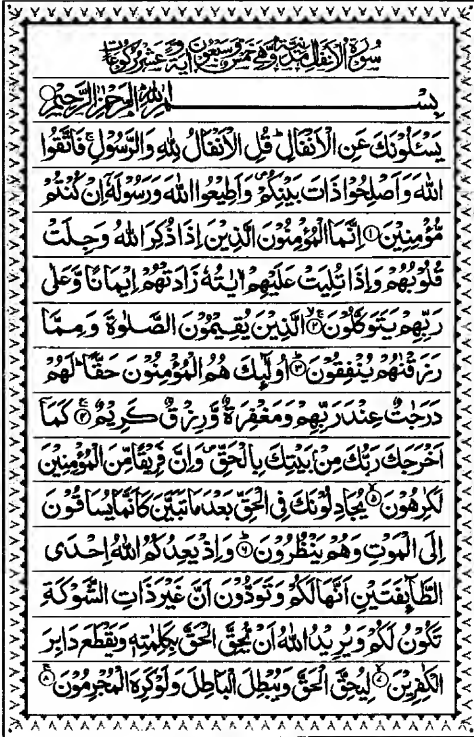 سُوْرَةُ الْاَنْفَالِ مَدَنِیَّةٌ وَّهِیَ خَمْسٌ وَّسَبْعُوْنَ اٰیَةً وَّعَشْرُ رُكُوْعَاتٍ
بِسْمِ اللّٰهِ الرَّحْمٰنِ الرَّحِیْمِ
یَسْـَٔلُوْنَكَ عَنِ الْاَنْفَالِؕ قُلِ الْاَنْفَالُ لِلّٰهِ وَالرَّسُوْلِۚ فَاتَّقُوا
اللّٰهَ وَاَصْلِحُوْا ذَاتَ بَیْنِكُمْ۪ وَاَطِیْعُوا اللّٰهَ وَرَسُوْلَهٗۤ اِنْ كُنْتُمْ
مُّؤْمِنِیْنَ ۝۱ اِنَّمَا الْمُؤْمِنُوْنَ الَّذِیْنَ اِذَا ذُكِرَ اللّٰهُ وَجِلَتْ
قُلُوْبُهُمْ وَاِذَا تُلِیَتْ عَلَیْهِمْ اٰیٰتُهٗ زَادَتْهُمْ اِیْمَانًا وَّعَلٰی
رَبِّهِمْ یَتَوَكَّلُوْنَ ۝۲ الَّذِیْنَ یُقِیْمُوْنَ الصَّلٰوةَ وَمِمَّا
رَزَقْنٰهُمْ یُنْفِقُوْنَ ۝۳ اُولٰٓىِٕكَ هُمُ الْمُؤْمِنُوْنَ حَقًّاؕ لَهُمْ
دَرَجٰتٌ عِنْدَ رَبِّهِمْ وَمَغْفِرَةٌ وَّرِزْقٌ كَرِیْمٌ ۝۴ كَمَاۤ
اَخْرَجَكَ رَبُّكَ مِنْۢ بَیْتِكَ بِالْحَقِّ۪ وَاِنَّ فَرِیْقًا مِّنَ الْمُؤْمِنِیْنَ
لَكٰرِهُوْنَ ۝۵ یُجَادِلُوْنَكَ فِی الْحَقِّ بَعْدَ مَا تَبَیَّنَ كَاَنَّمَا یُسَاقُوْنَ
اِلَی الْمَوْتِ وَهُمْ یَنْظُرُوْنَ ۝۶ وَاِذْ یَعِدُكُمُ اللّٰهُ اِحْدَی
الطَّآىِٕفَتَیْنِ اَنَّهَا لَكُمْ وَتَوَدُّوْنَ اَنَّ غَیْرَ ذَاتِ الشَّوْكَةِ
تَكُوْنُ لَكُمْ وَیُرِیْدُ اللّٰهُ اَنْ یُّحِقَّ الْحَقَّ بِكَلِمٰتِهٖ وَیَقْطَعَ دَابِرَ
الْكٰفِرِیْنَ ۝۷ لِیُحِقَّ الْحَقَّ وَیُبْطِلَ الْبَاطِلَ وَلَوْ كَرِهَ الْمُجْرِمُوْنَ ۝۸